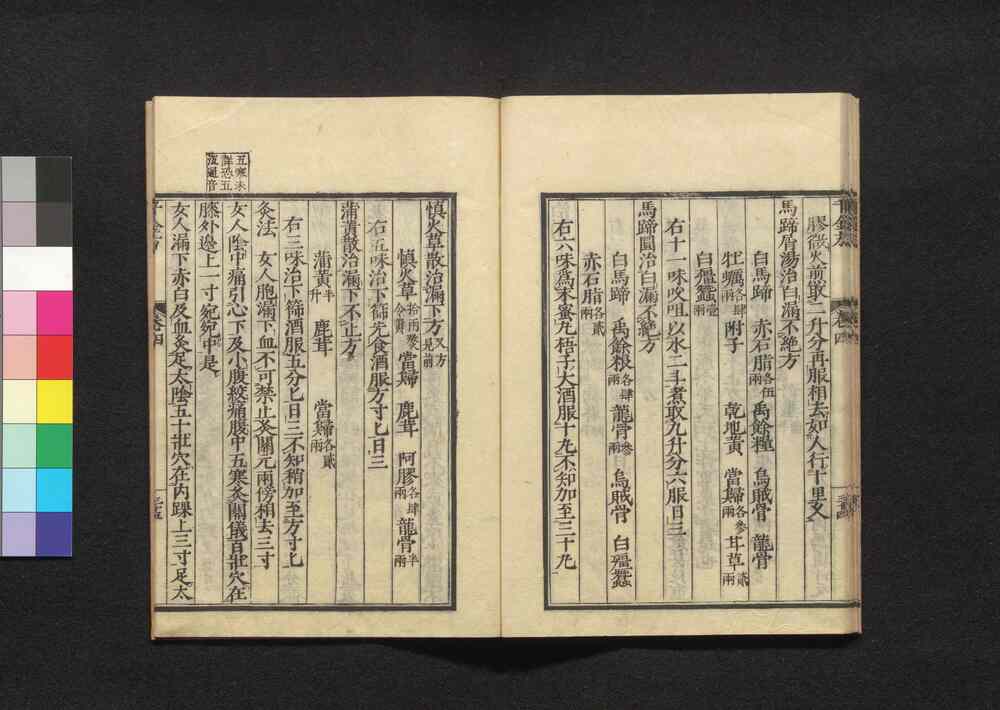 膠微火煎散二升分再服相去如人行十里久
馬蹄屑湯治白漏不絶方
白馬蹄 赤石脂各伍兩 禹餘糧 烏賊骨 龍骨
牡蠣各肆兩 附子 乾地黃 當歸各參兩 甘草貳兩
白殭蠶壹兩
右十一味㕮咀以水二斗煮取九升分六服日三
馬蹄圓治白漏不絶方
白馬蹄 禹餘粮各肆兩 龍骨參兩 烏賊骨 白殭蠶
赤石脂各貳兩
右六味爲末蜜丸梧子大酒服十丸不知加至三十丸
慎火草散治漏下方又方見前
慎火草拾兩熬令黃 當歸 鹿茸 阿膠各肆兩 龍骨半兩
右五味治下篩先食酒服方寸匕日三
蒲黃散治漏下不止方
蒲黃半升 鹿茸 當歸各貳兩
右三味治下篩酒服五分匕日三不知稍加至方寸匕
灸法 女人胞漏下血不可禁止灸關元兩傍相去三寸
女人陰中痛引心下及小腹絞痛腹中五寒灸關儀百壯穴在
膝外邊上一寸宛宛中是
女人漏下赤白及血灸足太陰五十壯穴在内踝上三寸足太
五寒未
詳恐五